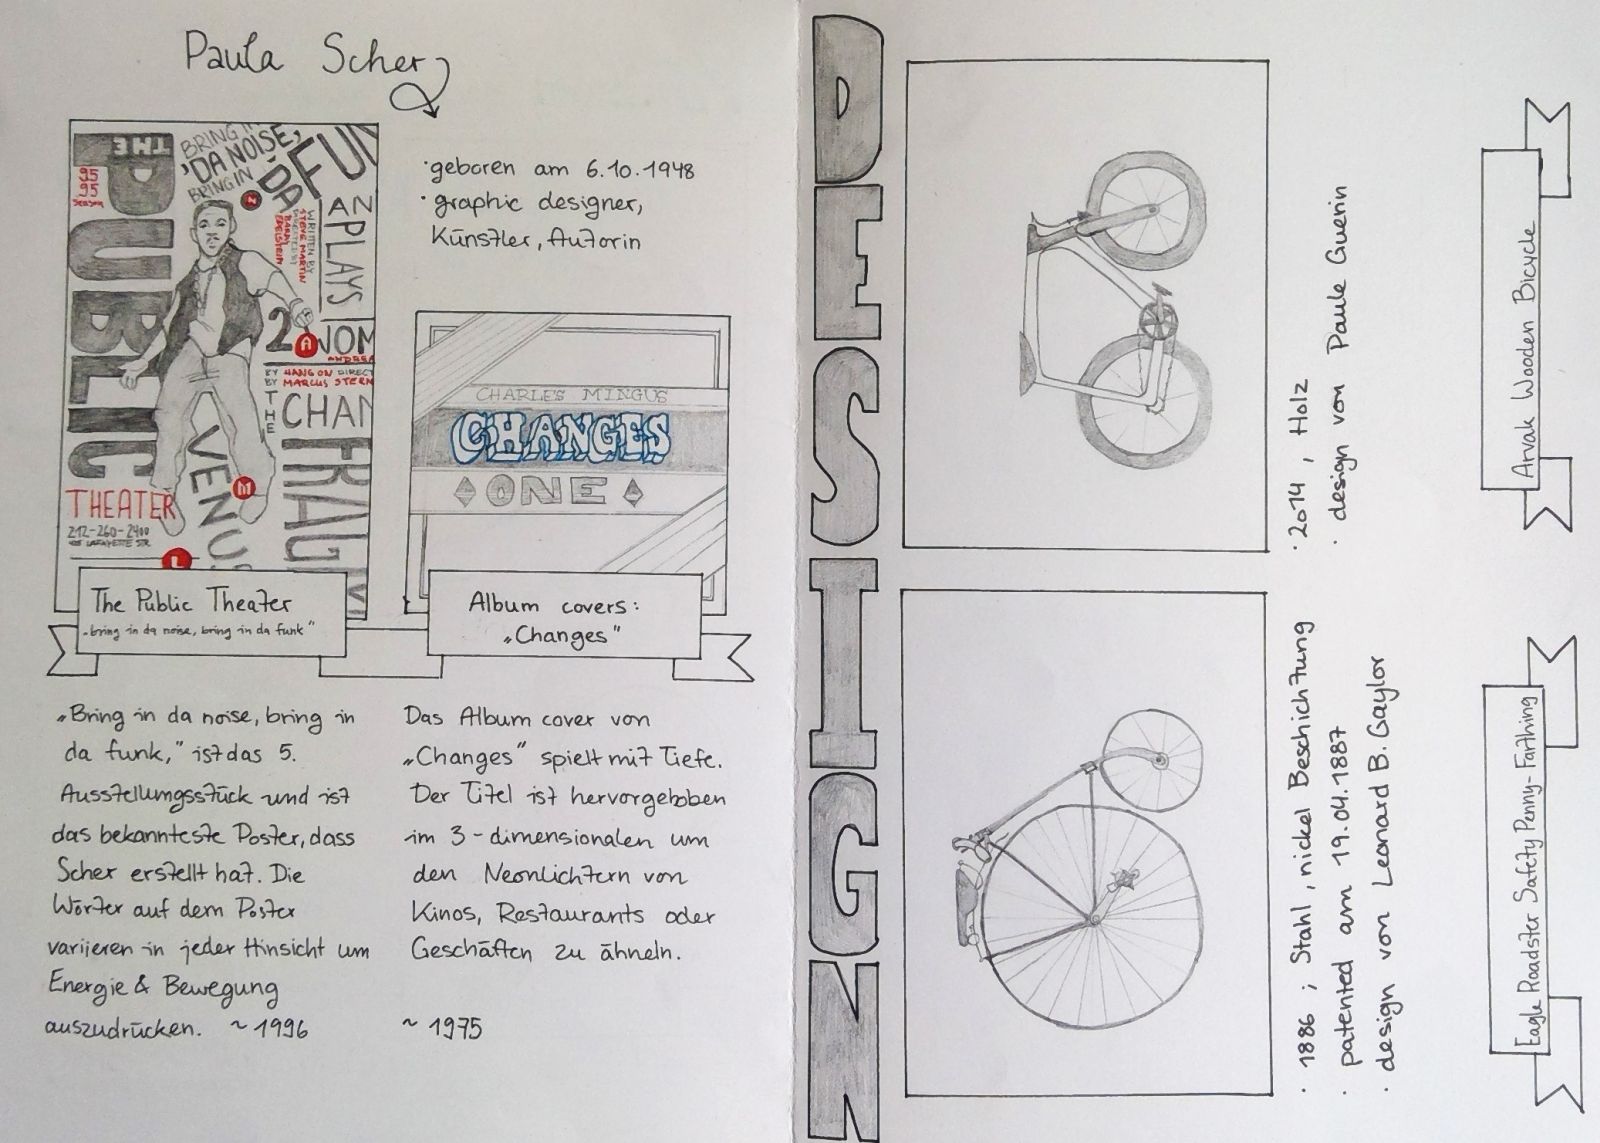 Paula Scher
THE
PUBLIC
THEATER
95
95
SEASON
212-260-2400
425 LAFAYETTE STR.
BRING IN
'DA NOISE,
BRING IN
'DA
FUN
N
WRITTEN BY
STEVE MARTIN
DIRECTED BY
BARRY
EDELSTEIN
AN
PLAYS
2
A
NOM
ANDREA
BY HANG ON DIRECT
BY MARCUS STERN
THE
CHAN
FRAG
VENUS
M
L
The Public Theater
„bring in da noise, bring in da funk"
· geboren am 6.10.1948
· graphic designer,
Künstler, Autorin
CHARLES MINGUS
CHANGES
ONE
Album covers:
„Changes"
„Bring in da noise, bring in
da funk," ist das 5.
Ausstellungsstück und ist
das bekannteste Poster, dass
Scher erstellt hat. Die
Wörter auf dem Poster
variieren in jeder Hinsicht um
Energie & Bewegung
auszudrücken. ~ 1996
Das Album cover von
„Changes" spielt mit Tiefe.
Der Titel ist hervorgehoben
im 3-dimensionalen um
den Neonlichtern von
Kinos, Restaurants oder
Geschäften zu ähneln.
~ 1975
DESIGN
· 1886 ; Stahl, nickel Beschichtung
· patented am 19.04.1887
· design von Leonard B. Gaylor
Eagle Roadster Safety Penny-Farthing
· 2014, Holz
· design von Paule Guerin
Arvak Wooden Bicycle